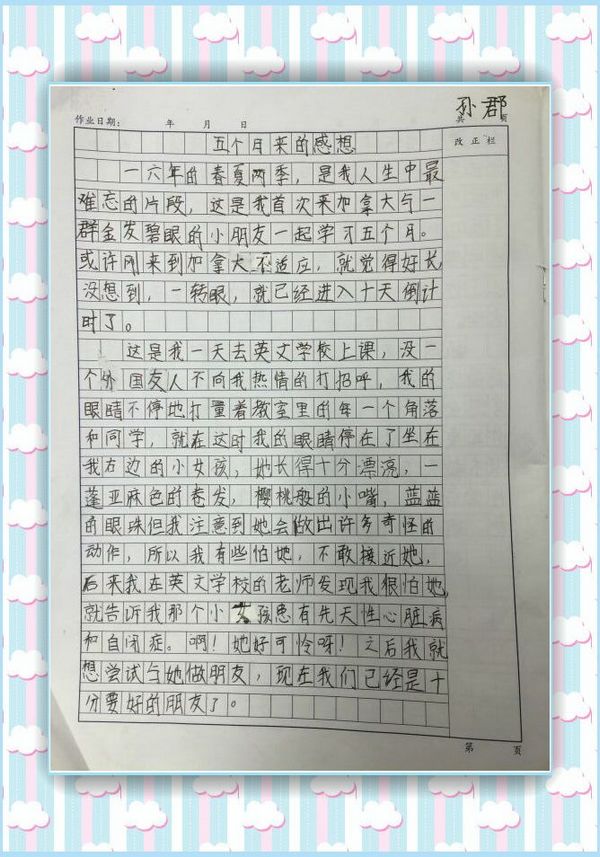 孙郡
作业日期： 年 月 日
共 页
五个月来的感想
改正栏
一六年的春夏两季，是我人生中最
难忘的片段，这是我首次来加拿大与一
群金发碧眼的小朋友一起学习五个月。
或许刚来到加拿大不适应，就觉得好长，
没想到，一转眼，就已经进入十天倒计
时了。
这是我一天去英文学校上课，没一
个外国友人不向我热情的打招呼，我的
眼睛不停地打量着教室里的每一个角落
和同学，就在这时我的眼睛停在了坐在
我右边的小女孩，她长得十分漂亮，一
蓬亚麻色的卷发，樱桃般的小嘴，蓝蓝
的眼珠但我注意到她会做出许多奇怪的
动作，所以我有些怕她，不敢接近她，
后来我在英文学校的老师发现我很怕她，
就告诉我那个小女孩患有先天性心脏病
和自闭症。啊！她好可怜呀！之后我就
想尝试与她做朋友，现在我们已经是十
分要好的朋友了。
第 页